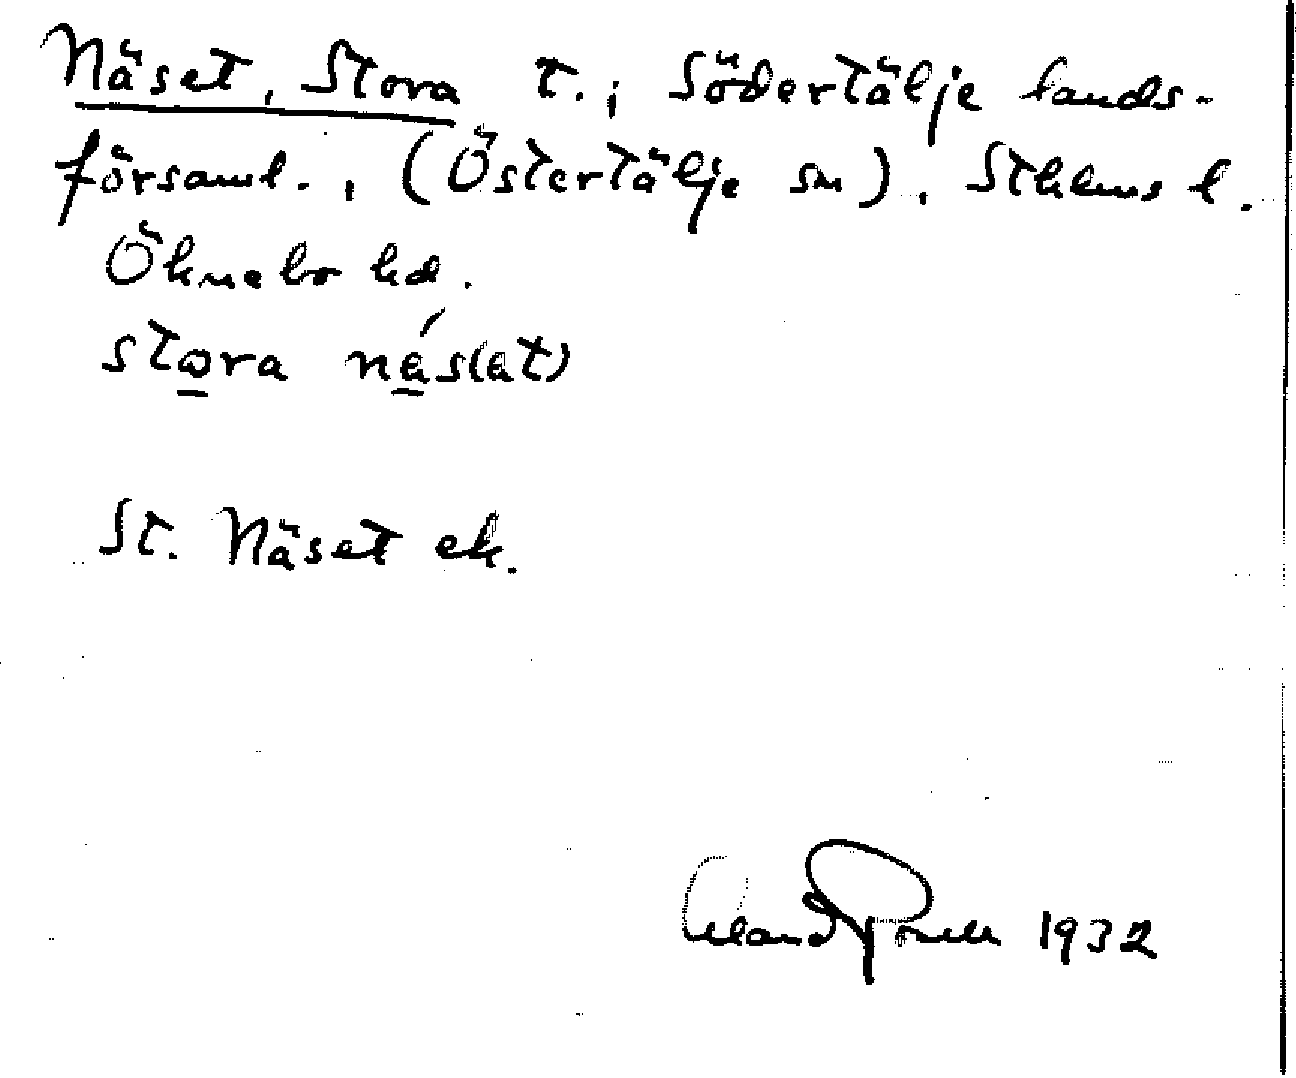 Näset, Stora t., Södertälje lands-
församl., (Östertälje sn), Sthlms l.
Öknebo hd.
stora näs(ət)
St. Näset ek.
1932